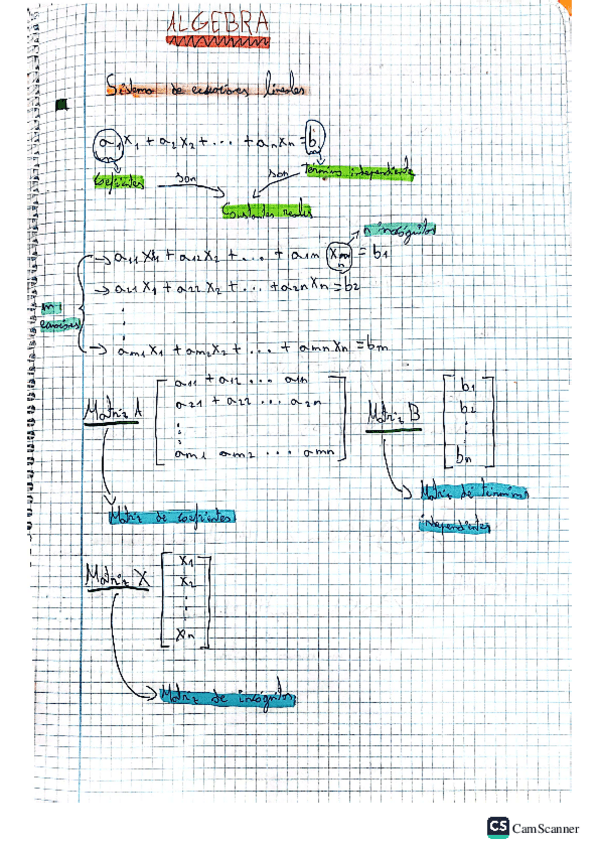 ALGEBRA
Sistema de ecuaciones lineales
a₁x₁ + a₂x₂ + ... + aₙxₙ = b
Término independiente
son
son
Constantes reales
n incógnitas
→ a₁₁x₁ + a₁₂x₂ + ... + a₁ₙ xₙ = b₁
→ a₂₁x₁ + a₂₂x₂ + ... + a₂ₙxₙ = b₂
⋮
→ aₘ₁x₁ + aₘ₂x₂ + ... + aₘₙxₙ = bₘ
Matriz A
a₁₁ + a₁₂ ... a₁ₙ
a₂₁ + a₂₂ ... a₂ₙ
⋮
aₘ₁ aₘ₂ ... aₘₙ
Matriz B
b₁
b₂
⋮
bₙ
Matriz de términos
independientes
Matriz de
Matriz X
x₁
x₂
⋮
xₙ
Matriz de incógnitas
CS CamScanner